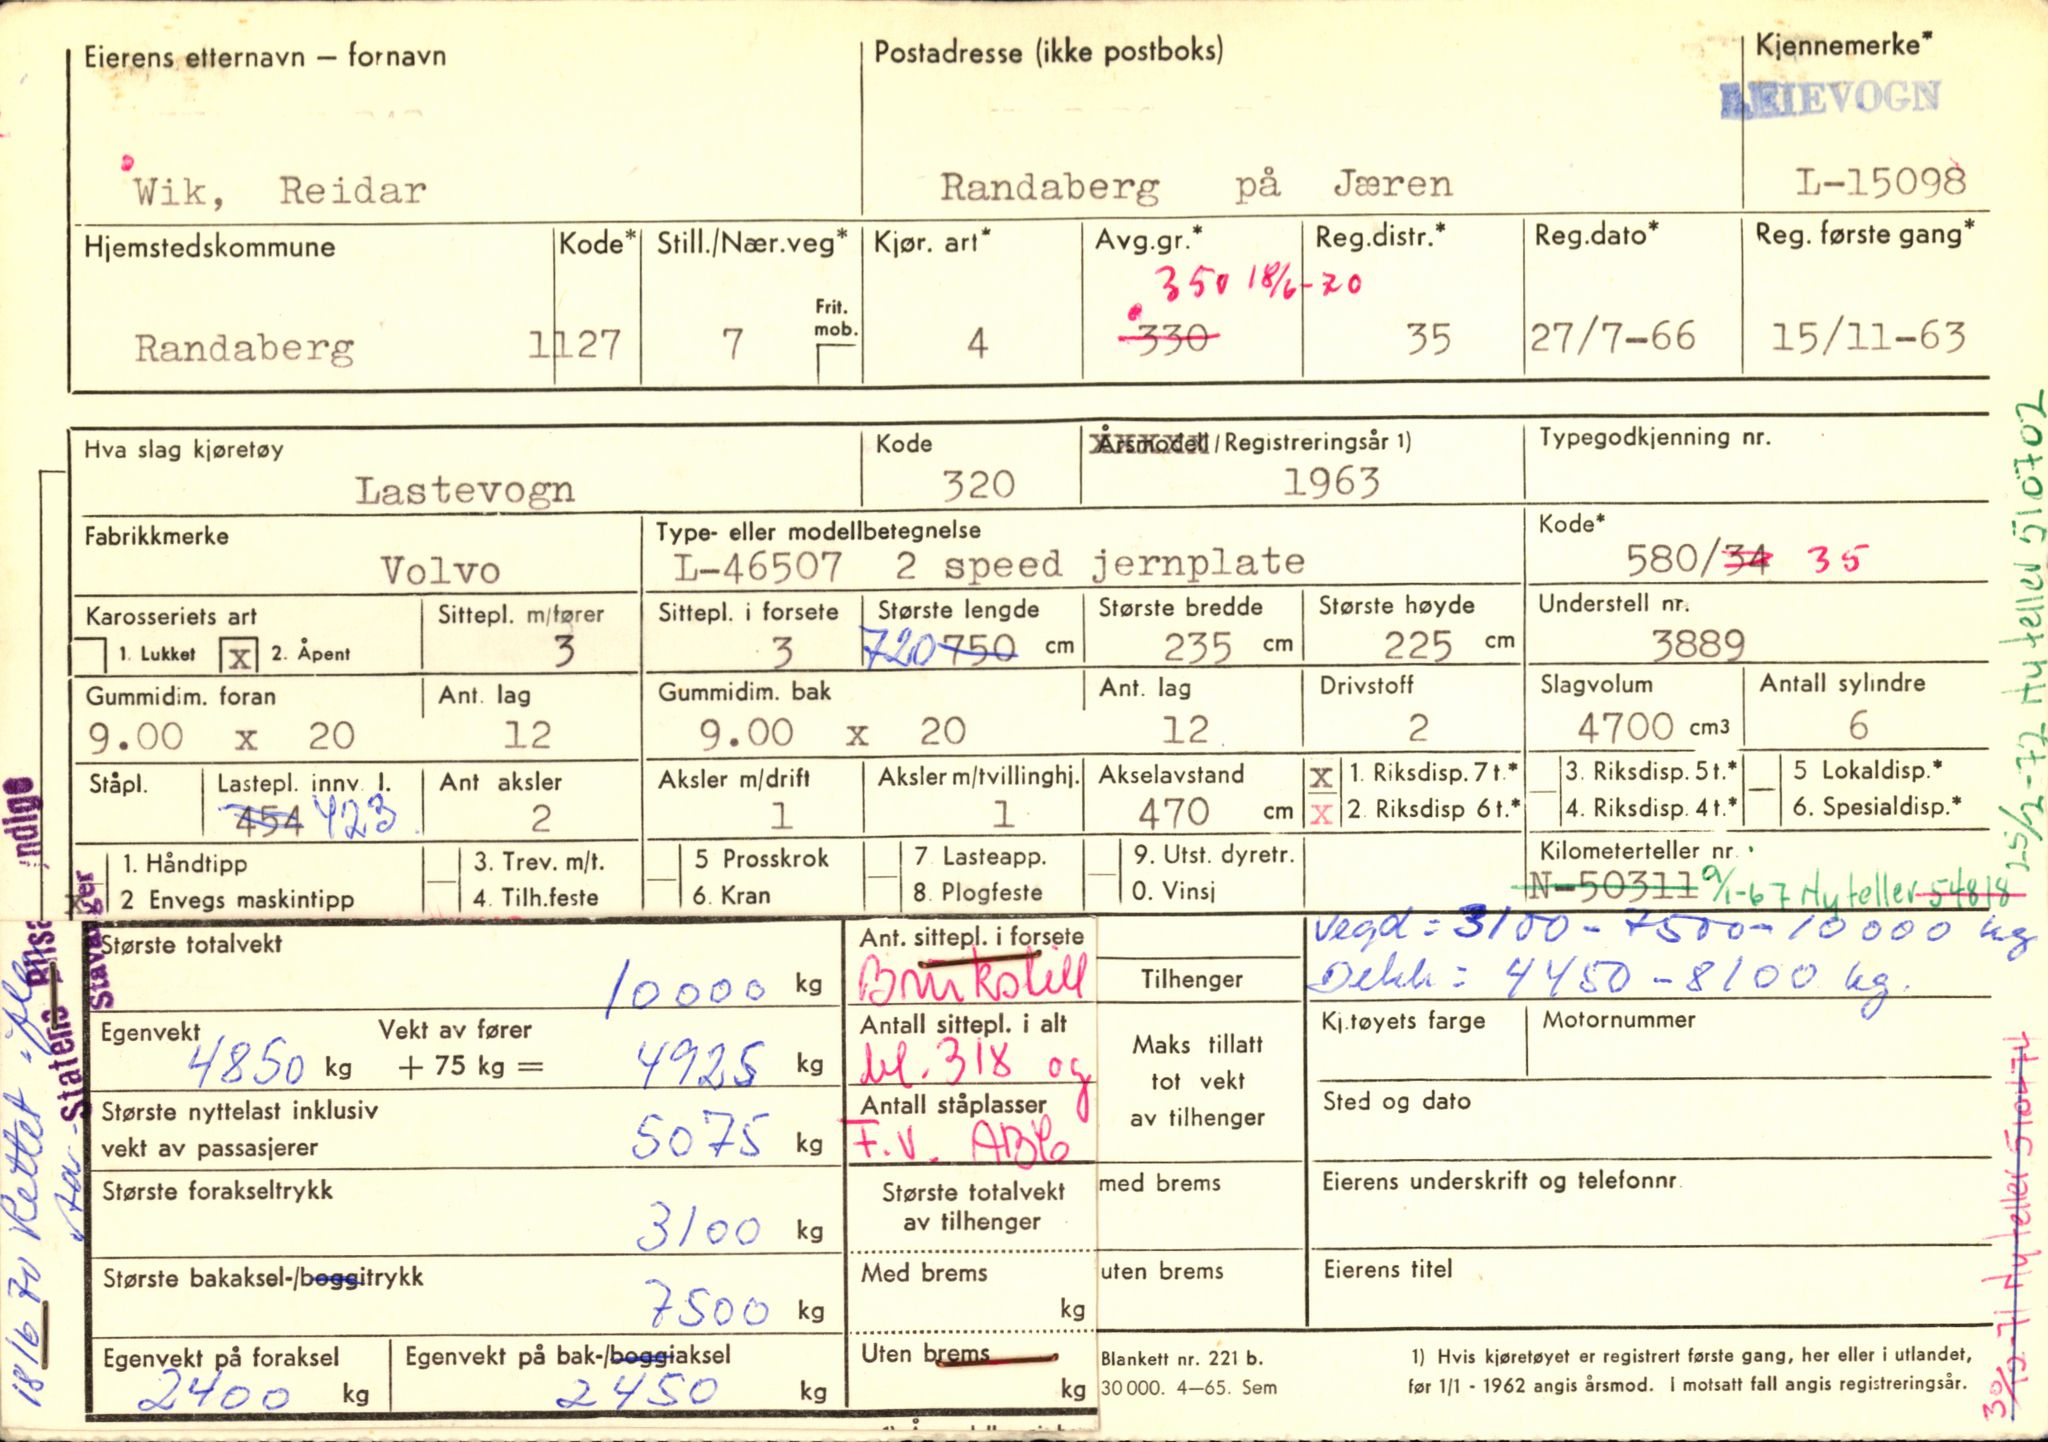 Eierens etternavn – fornavn Postadresse (ikke postboks) Kjennemerke*
LEIEVOGN
Wik, Reidar Randaberg på Jæren L-15098
Hjemstedskommune Kode* Still./Nær.veg* Kjør. art* Avg.gr.* Reg.distr.* Reg.dato* Reg. første gang*
350 18/6-70
Frit. mob.
Randaberg 1127 7 4 330 35 27/7-66 15/11-63
Hva slag kjøretøy Kode Årsmodell/Registreringsår 1) Typegodkjenning nr.
Lastevogn 320 1963
Fabrikkmerke Type- eller modellbetegnelse Kode*
Volvo L-46507 2 speed jernplate 580/34 35
Karosseriets art Sittepl. m/fører Sittepl. i forsete Største lengde Største bredde Største høyde Understell nr.
1. Lukket x 2. Åpent 3 3 720 750 cm 235 cm 225 cm 3889
Gummidim. foran Ant. lag Gummidim. bak Ant. lag Drivstoff Slagvolum Antall sylindre
9.00 x 20 12 9.00 x 20 12 2 4700 cm3 6
Ståpl. Lastepl. innv. l. Ant aksler Aksler m/drift Aksler m/tvillinghj. Akselavstand x 1. Riksdisp. 7 t.* 3. Riksdisp. 5 t.* 5 Lokaldisp.*
454 423 2 1 1 470 cm x 2. Riksdisp 6 t.* 4. Riksdisp. 4 t.* 6. Spesialdisp.*
1. Håndtipp 3. Trev. m/t. 5 Prosskrok 7 Lasteapp. 9. Utst. dyretr. Kilometerteller nr.
x 2 Envegs maskintipp 4. Tilh.feste 6. Kran 8. Plogfeste 0. Vinsj N-50311 9/1-67 Ny teller 54818
25/2-72 Ny teller 510702
Største totalvekt 10000 kg
Ant. sittepl. i forsete
Brukstill
Tilhenger
Vegd = 3100 - 7500 - 10000 kg
Dekk = 4450 - 8100 kg.
Egenvekt Vekt av fører
4850 kg + 75 kg = 4925 kg
Antall sittepl. i alt
bl. 318 og
Maks tillatt
tot vekt
av tilhenger
Kj.tøyets farge Motornummer
Største nyttelast inklusiv
vekt av passasjerer 5075 kg
Antall ståplasser
F.V. ABC
Sted og dato
Største forakseltrykk
3100 kg
Største totalvekt
av tilhenger
med brems
Eierens underskrift og telefonnr
Største bakaksel-/boggitrykk
7500 kg
Med brems
kg
uten brems
Eierens titel
Egenvekt på foraksel Egenvekt på bak-/boggiaksel
2400 kg 2450 kg
Uten brems
kg
Blankett nr. 221 b.
30 000. 4–65. Sem
1) Hvis kjøretøyet er registrert første gang, her eller i utlandet,
før 1/1 - 1962 angis årsmod. I motsatt fall angis registreringsår.
18/6 70 Rettet iflg.
Statens
Stavanger
Ny teller 510474